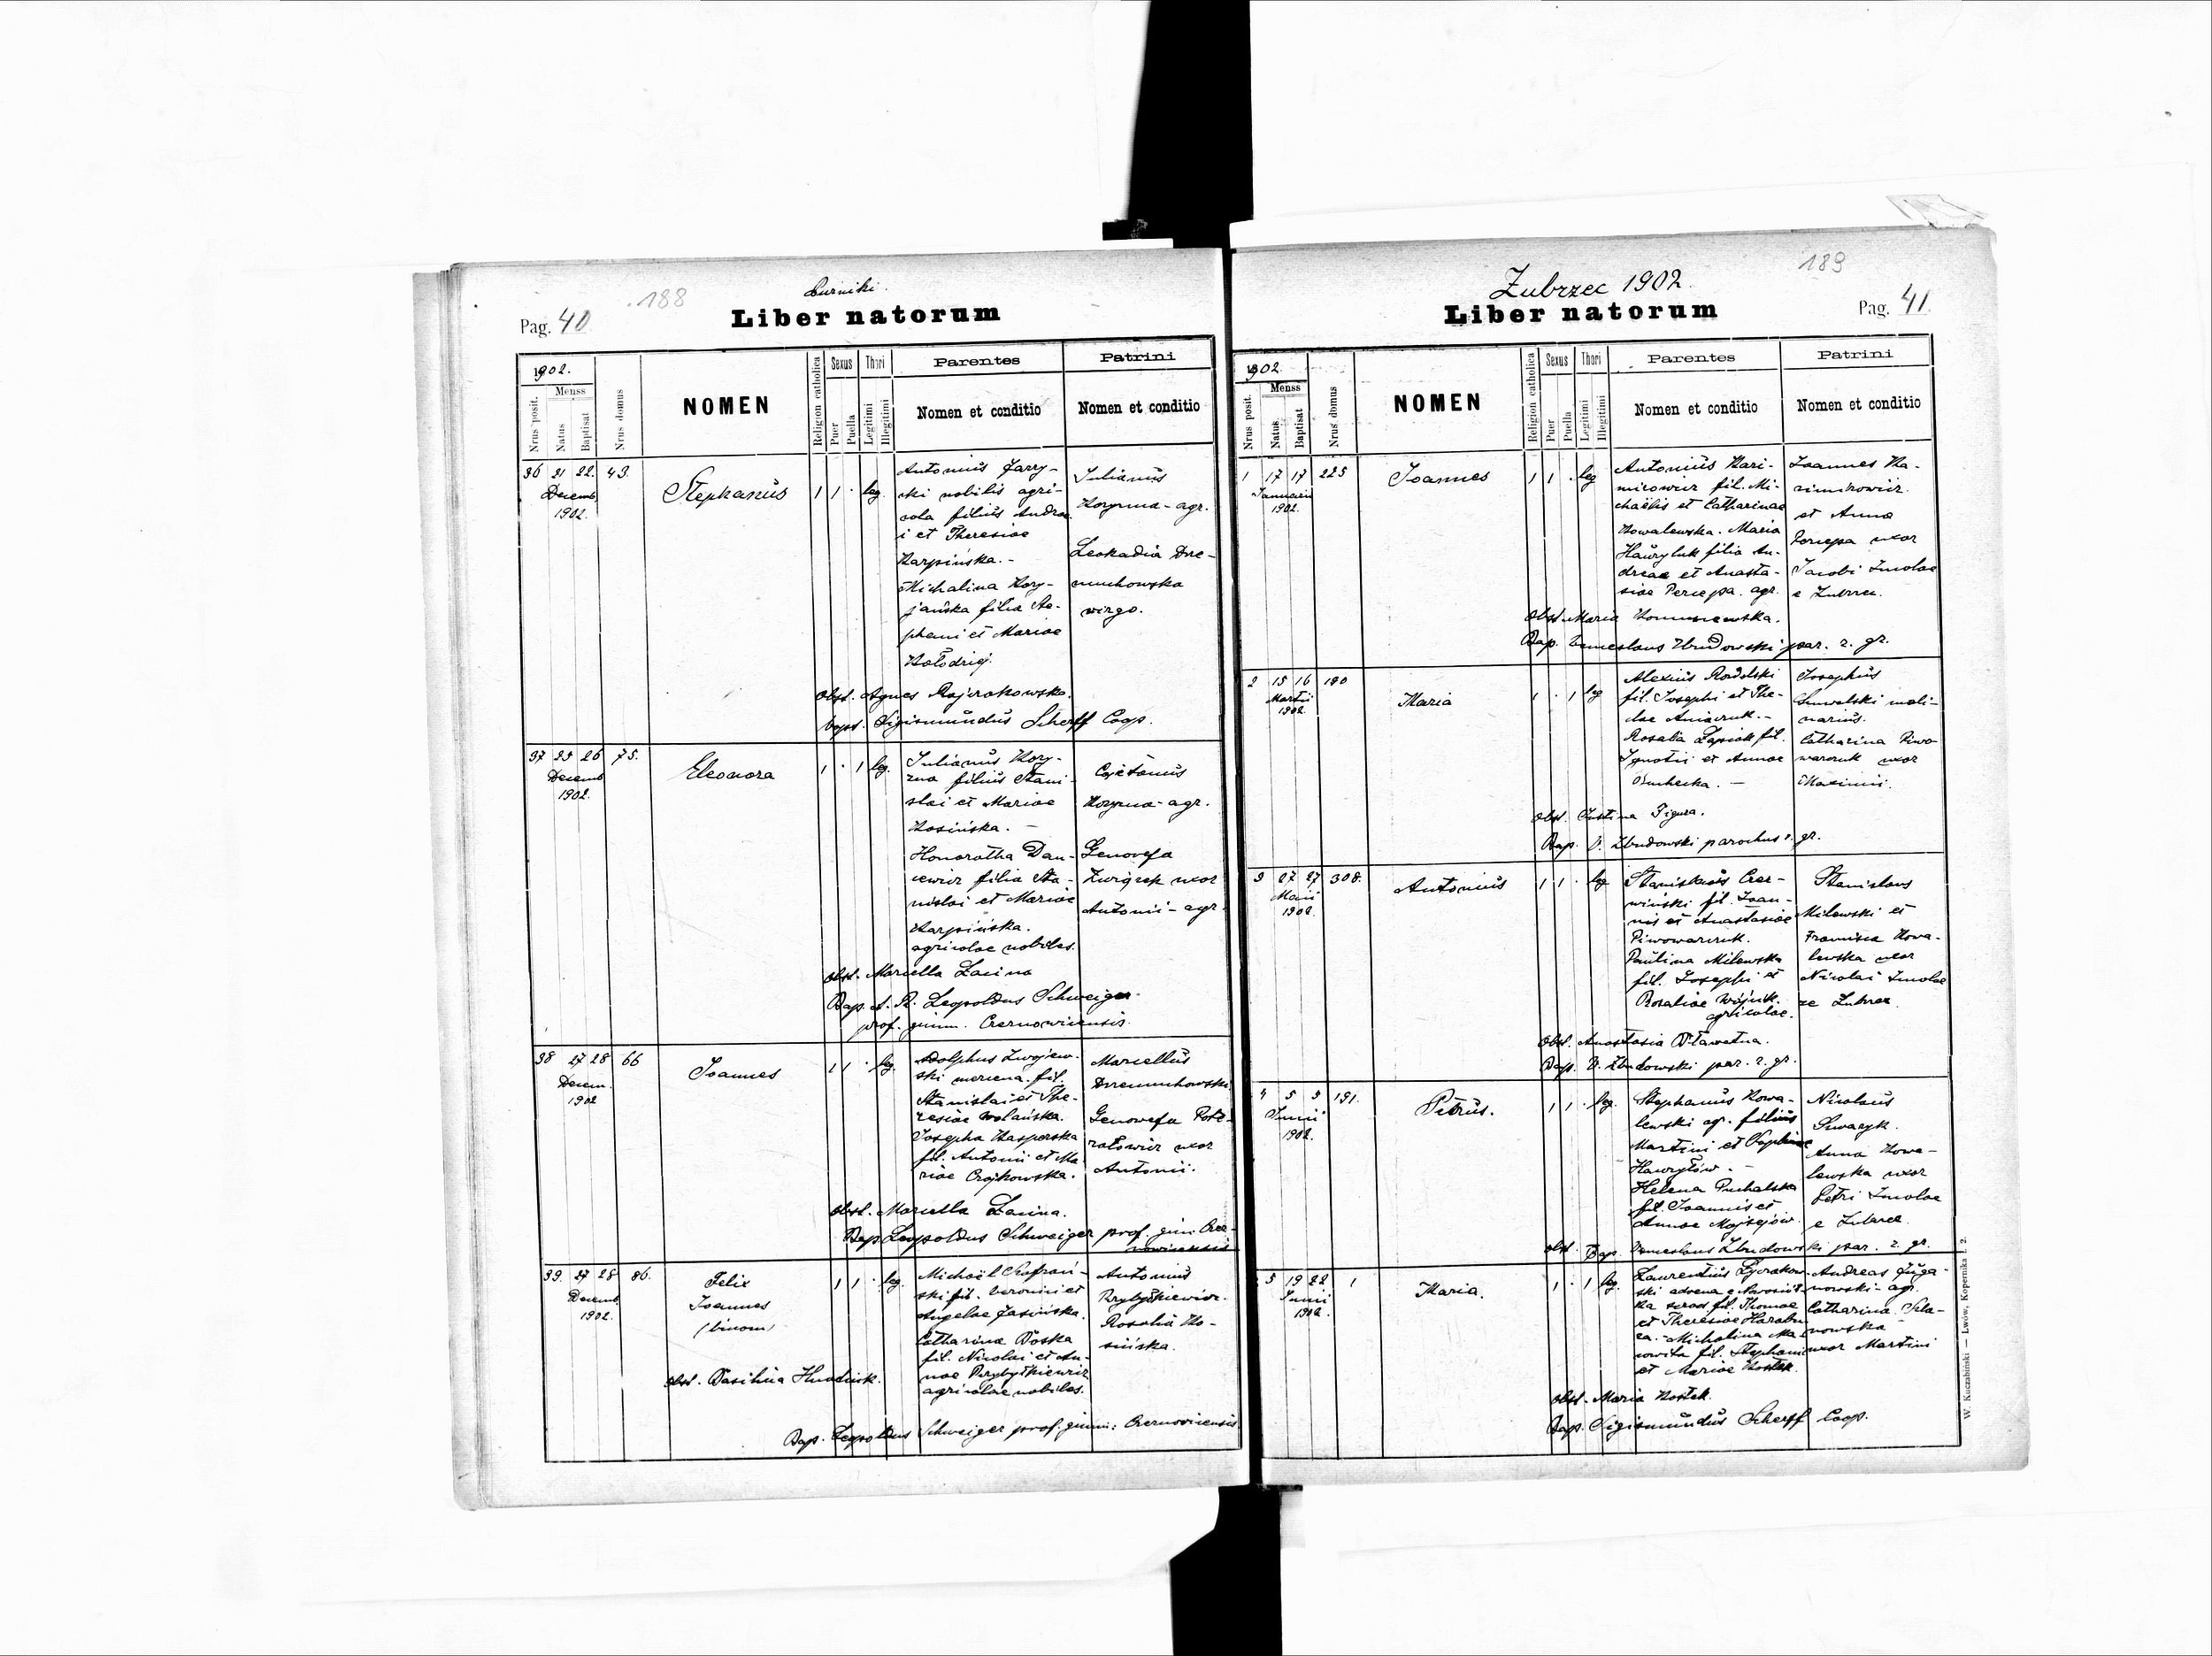 188
Pag. 40
Liber natorum
1902.
Nrus posit.
Menss
Natus
Baptisat
Nrus domus
NOMEN
Religion catholica
Sexus
Puer
Puella
Thori
Legitimi
Illegitimi
Parentes
Nomen et conditio
Patrini
Nomen et conditio
36 21 22. 43.
Decemb.
1902.
Stephanus
1 1 · leg.
Antonius Jarry-
cki nobilis agri-
cola filius Andrea
i et Theresiae
Karpińska. -
Michalina Kory-
jańska filia Ste-
phani et Mariae
Hołodryj.
Julianus
Koryzna - agr.
Leokadia Drе-
muchowska
virgo.
Obst. Agnes Rajrakowska.
bapt. Sigismundus Scherff Coop.
37 25 26 75.
Decemb
1902.
Eleonora
1 · 1 leg.
Julianus Kory-
zna filius Stani-
slai et Mariae
Kosińska. -
Honoratha Dan-
cewicz filia Sta-
nislai et Mariae
Karpińska.
agricolae nobiles.
Cajetanus
Koryzna - agr.
Genovefa
uxor
Antonii - agr.
obst. Marcella Lacina
Bap. A. R. Leopoldus Schweiger
prof. gimn. Czernowicensis.
38 27 28 66
Decem.
1902
Joannes
1 1 · leg.
Adolphus
ski fil.
Stanislai et The-
resiae Wolańska.
Josepha Kasperska
fil. Antonii et Ma
riae Czajkowska.
Marcellus
Drzemuchowski
Genowefa
uxor
Antonii.
obst. Marcella Lacina.
Bap. Leopoldus Schweiger prof. gim. Czer-
nowicensis
39. 27 28 86.
Decemb.
1902.
Felix
Joannes
(binom)
1 1 · leg.
Michaël Szafrań-
ski fil. Veronini et
Angelae Jasińska.
Catharina Doska
fil. Nicolai et An-
nae Przybytkiewicz
agricolae nobiles.
Antonius
Przybytkiewicz.
Rosalia Ko-
sińska.
obst. Basilica
Bap. Leopoldus Schweiger prof. gimn: Czernovicensis
189
Zubrzec 1902.
Liber natorum
Pag. 41.
1902
Nrus posit.
Menss
Natus.
Baptisat
Nrus domus
NOMEN
Religion catholica
Sexus
Puer
Puella
Thori
Legitimi
Illegitimi
Parentes
Nomen et conditio
Patrini
Nomen et conditio
1 17 17 225
Januarii
1902.
Joannes
1 1 · leg
Antonius Kazi-
mirowicz fil. Mi-
chaëlis et Catharinae
Kowalewska. Maria
Hawryluk filia An-
dreae et Anasta-
siae Perepa. agr.
Joannes Ka-
zimirowicz.
et Anna
Perepa uxor
Jacobi Incolae
e Zubrzec.
Obst. Maria
Bap. Venceslaus Zbudowski par. r. gr.
2 15 16 180
Martii
1902.
Maria
1 · 1 leg
Alexius Rudolski
fil. Josephi et The-
clae
Rosalia Łapiak fil.
Ignatii et Annae
Josephus
moli-
narius.
Catharina Piwo-
warczuk uxor
Maximi.
obst. Justina Figura.
Bap. V. Zbudowski parochus r. gr.
3 27 27 308.
Maii
1902.
Antonius
1 1 · leg
Stanislaus Czer-
wiński fil. Joan-
nis et Anastasiae
Piwowarczuk.
Paulina Milewska
fil. Josephi et
Rosaliae Wójcik.
agricolae.
Stanislaus
Milewski et
Francisca Kowa-
lewska uxor
Nicolai Incolae
ze Zubrzec.
obst. Anastasia
Bap. V. Zbudowski par. r. gr.
4 5 5 191.
Junii
1902.
Petrus.
1 1 · leg.
Stephanus Kowa-
lewski agr. filius
Martini et Sophiae
Hawryłów. -
Helena Puchalska
fil. Joannis et
Annae Mojsejów.
Nicolaus
Anna Kowa-
lewska uxor
Petri Incolae
e Zubrzec.
obst. Bap. Venceslaus Zbudowski par. r. gr.
5 19 22 1
Junii
1902.
Maria.
1 · 1 leg.
Laurentius
ski advena e
fil. Thomae
et Theresiae
Michalina Ma
fil. Stephani
et Mariae Kostek.
Andreas Juga-
nowski - agr.
Catharina Sela-
nowska
uxor Martini
obst. Maria Kostek.
Bap. Sigismundus Scherff Coop.
W. Kuczabiński — Lwów, Kopernika l. 2.